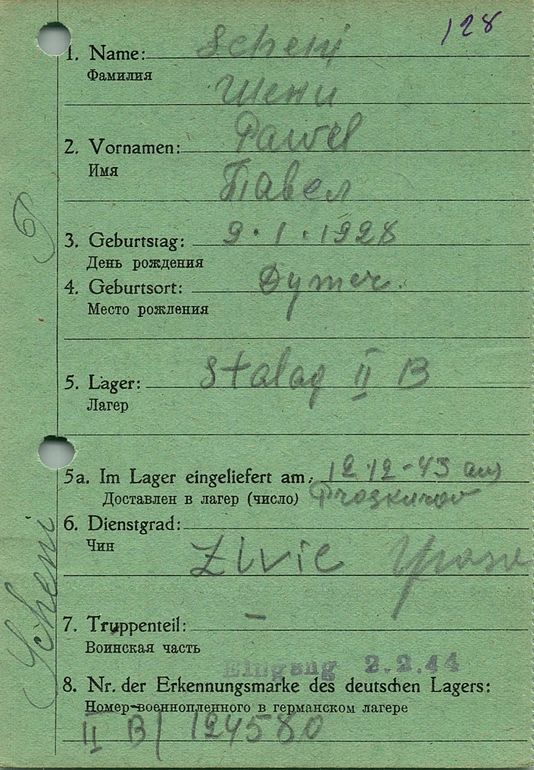 128
1. Name: Scheni
Фамилия
Шени
2. Vornamen: Pawel
Имя
Павел
3. Geburtstag: 9.1.1928
День рождения
4. Geburtsort: Dymer.
Место рождения
5. Lager: Stalag II B
Лагер
5a. Im Lager eingeliefert am: 12.12-43 aus
Доставлен в лагер (число) Proskurov
6. Dienstgrad:
Чин
Zivic
7. Truppenteil: –
Воинская часть
Eingang 2.2.44
8. Nr. der Erkennungsmarke des deutschen Lagers:
Номер военнопленного в германском лагере
II B/ 124580
Scheni P